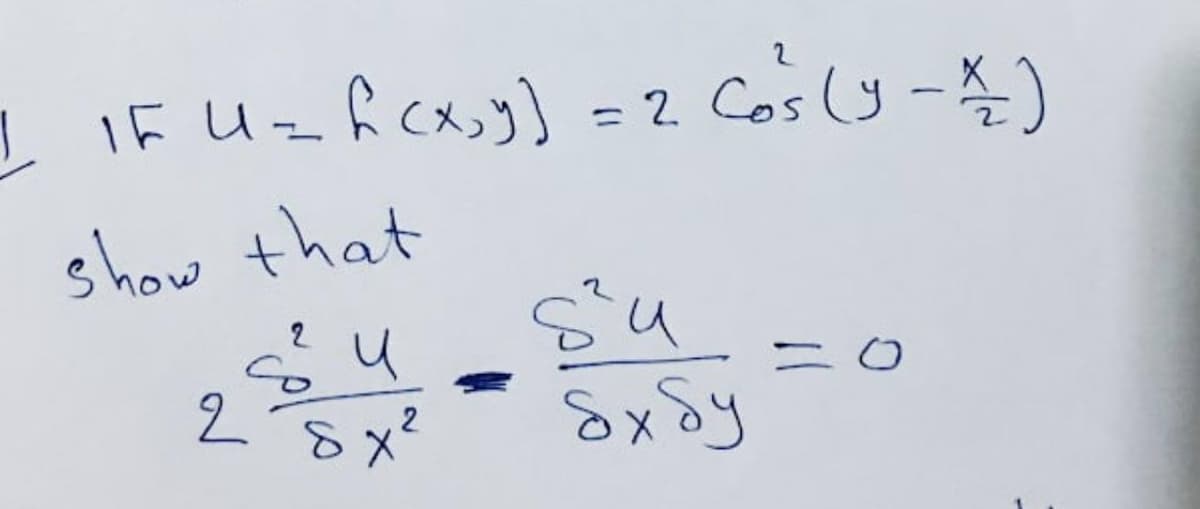 1 If u = f(x,y) = 2 Cos²(y - x/2)
show that
2 δ²u/δx² - δ²u/δxδy = 0